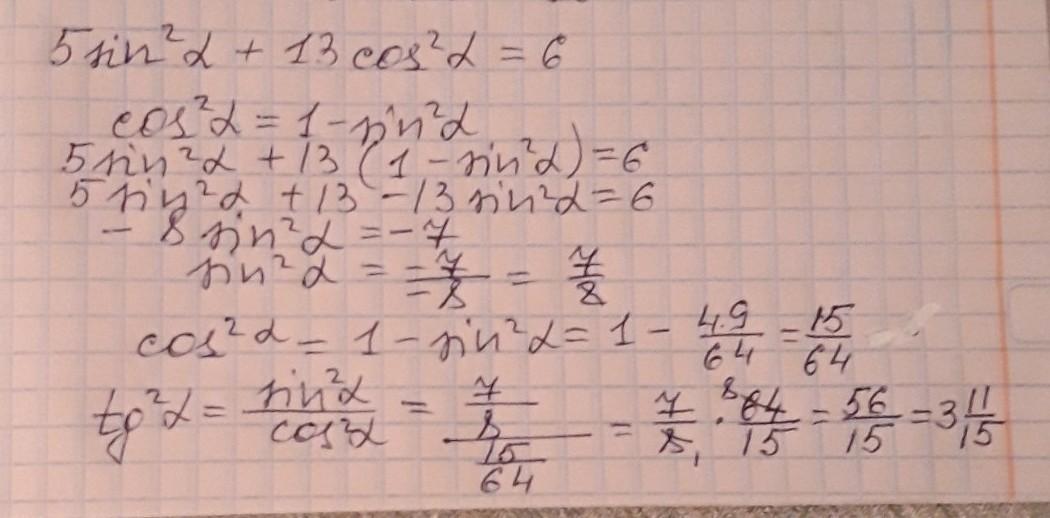 5 sin²α + 13 cos²α = 6
cos²α = 1 - sin²α
5 sin²α + 13 (1 - sin²α) = 6
5 sin²α + 13 - 13 sin²α = 6
- 8 sin²α = - 7
sin²α = -7/-8 = 7/8
cos²α = 1 - sin²α = 1 - 49/64 = 15/64
tg²α = sin²α/cos²α = (7/8)/(15/64) = 7/8₁ · ⁸64/15 = 56/15 = 3 11/15